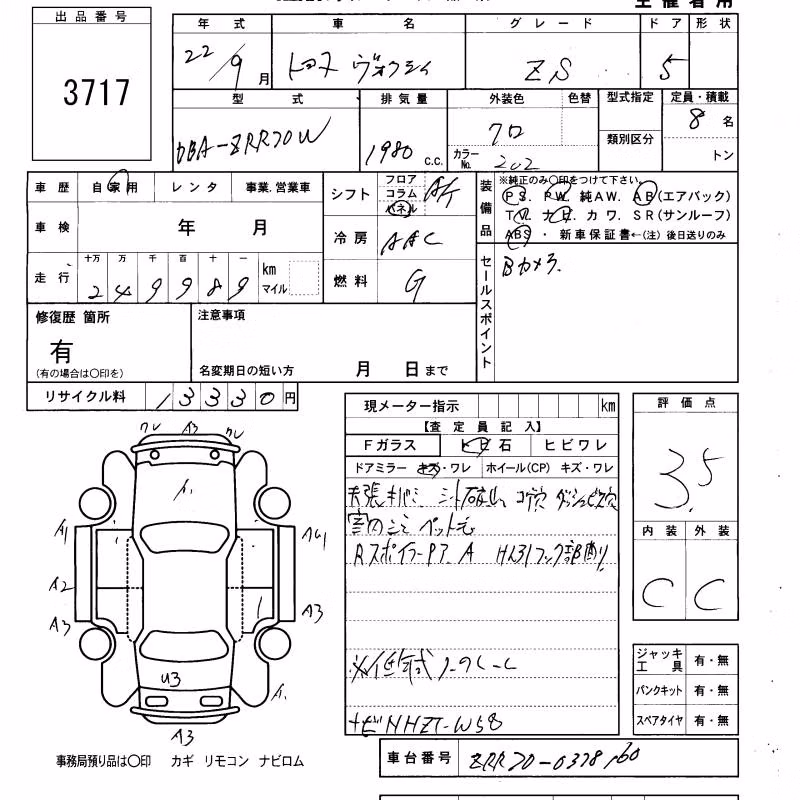 主催者用
出品番号
3717
年式 車名 グレード ドア 形状
22/9月 トヨタ ヴォクシィ ZS 5
型式 排気量 外装色 色替 型式指定 定員・積載
DBA-ZRR70W 1980 c.c. クロ 8名
カラーNo. 202 類別区分 トン
車歴 自家用 レンタ 事業.営業車
シフト フロア コラム パネル A/T
装備品 ※純正のみ〇印をつけて下さい。
PS. PW. 純AW. AB(エアバック)
TV. ナビ. カワ. SR(サンルーフ)
ABS ・ 新車保証書←(注)後日送りのみ
車検 年 月
冷房 AAC
走行 十万 万 千 百 十 一 km マイル
249989
燃料 G
セールスポイント Bカメラ.
修復歴 箇所
有
(有の場合は〇印を)
注意事項
名変期日の短い方 月 日まで
リサイクル料 13330円
現メーター指示 km
【査定員記入】
Fガラス トビ石 ヒビワレ
ドアミラー キズ・ワレ ホイール(CP) キズ・ワレ
室内シミ ペット毛
Rスポイラー A
ナビNHZT-W58
評価点
3.5
内装 外装
C C
ジャッキ工具 有・無
パンクキット 有・無
スペアタイヤ 有・無
A3
A1
A2
A3
A3
U3
A3
事務局預り品は〇印 カギ リモコン ナビロム
車台番号 ZRR70-0378160